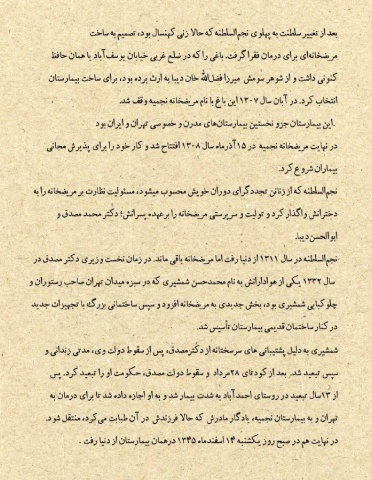 بعد از تغییر سلطنت به پهلوی نجم‌السلطنه که حالا زنی کهنسال بود، تصمیم به ساخت
مریضخانه‌ای برای درمان فقرا گرفت. باغی را که در ضلع غربی خیابان یوسف‌آباد یا همان حافظ
کنونی داشت و از شوهر سومش میرزا فضل‌الله خان دیبا به ارث برده بود، برای ساخت بیمارستان
انتخاب کرد. در آبان سال ۱۳۰۷ این باغ با نام مریضخانه نجمیه وقف شد.
.این بیمارستان جزو نخستین بیمارستان‌های مدرن و خصوصی تهران و ایران بود
در نهایت مریضخانه نجمیه در ۱۵ آذرماه سال ۱۳۰۸ افتتاح شد و کار خود را برای پذیرش مجانی
بیماران شروع کرد.
نجم‌السلطنه که از زنان تجددگرای دوران خویش محسوب میشود، مسئولیت نظارت بر مریضخانه را به
دخترانش واگذار کرد و تولیت و سرپرستی مریضخانه را برعهده پسرانش؛ دکتر محمد مصدق و
ابوالحسن دیبا.
نجم‌السلطنه در سال ۱۳۱۱ از دنیا رفت اما مریضخانه باقی ماند. در زمان نخست وزیری دکتر مصدق در
سال ۱۳۳۲ یکی از هوادارانش به نام محمدحسن شمشیری که در سبزه میدان تهران صاحب رستوران و
چلوکبابی شمشیری بود، بخش جدیدی به مریضخانه افزود و سپس ساختمانی بزرگ با تجهیزات جدید
در کنار ساختمان قدیمی بیمارستان تأسیس شد.
شمشیری به دلیل پشتیبانی های سرسختانه از دکترمصدق، پس از سقوط دولت وی، مدتی زندانی و
سپس تبعید شد. بعد از کودتای ۲۸مرداد و سقوط دولت مصدق، حکومت او را تبعید کرد. پس
از ۱۳سال تبعید در روستای احمدآباد به شدت بیمار شد و به او اجازه داده شد تا برای درمان به
تهران و به بیمارستان نجمیه، یادگار مادرش که حالا فرزندش در آن طبابت می‌کرد، منتقل شود.
در نهایت هم در صبح روز یکشنبه ۱۴ اسفندماه ۱۳۴۵ درهمان بیمارستان از دنیا رفت .